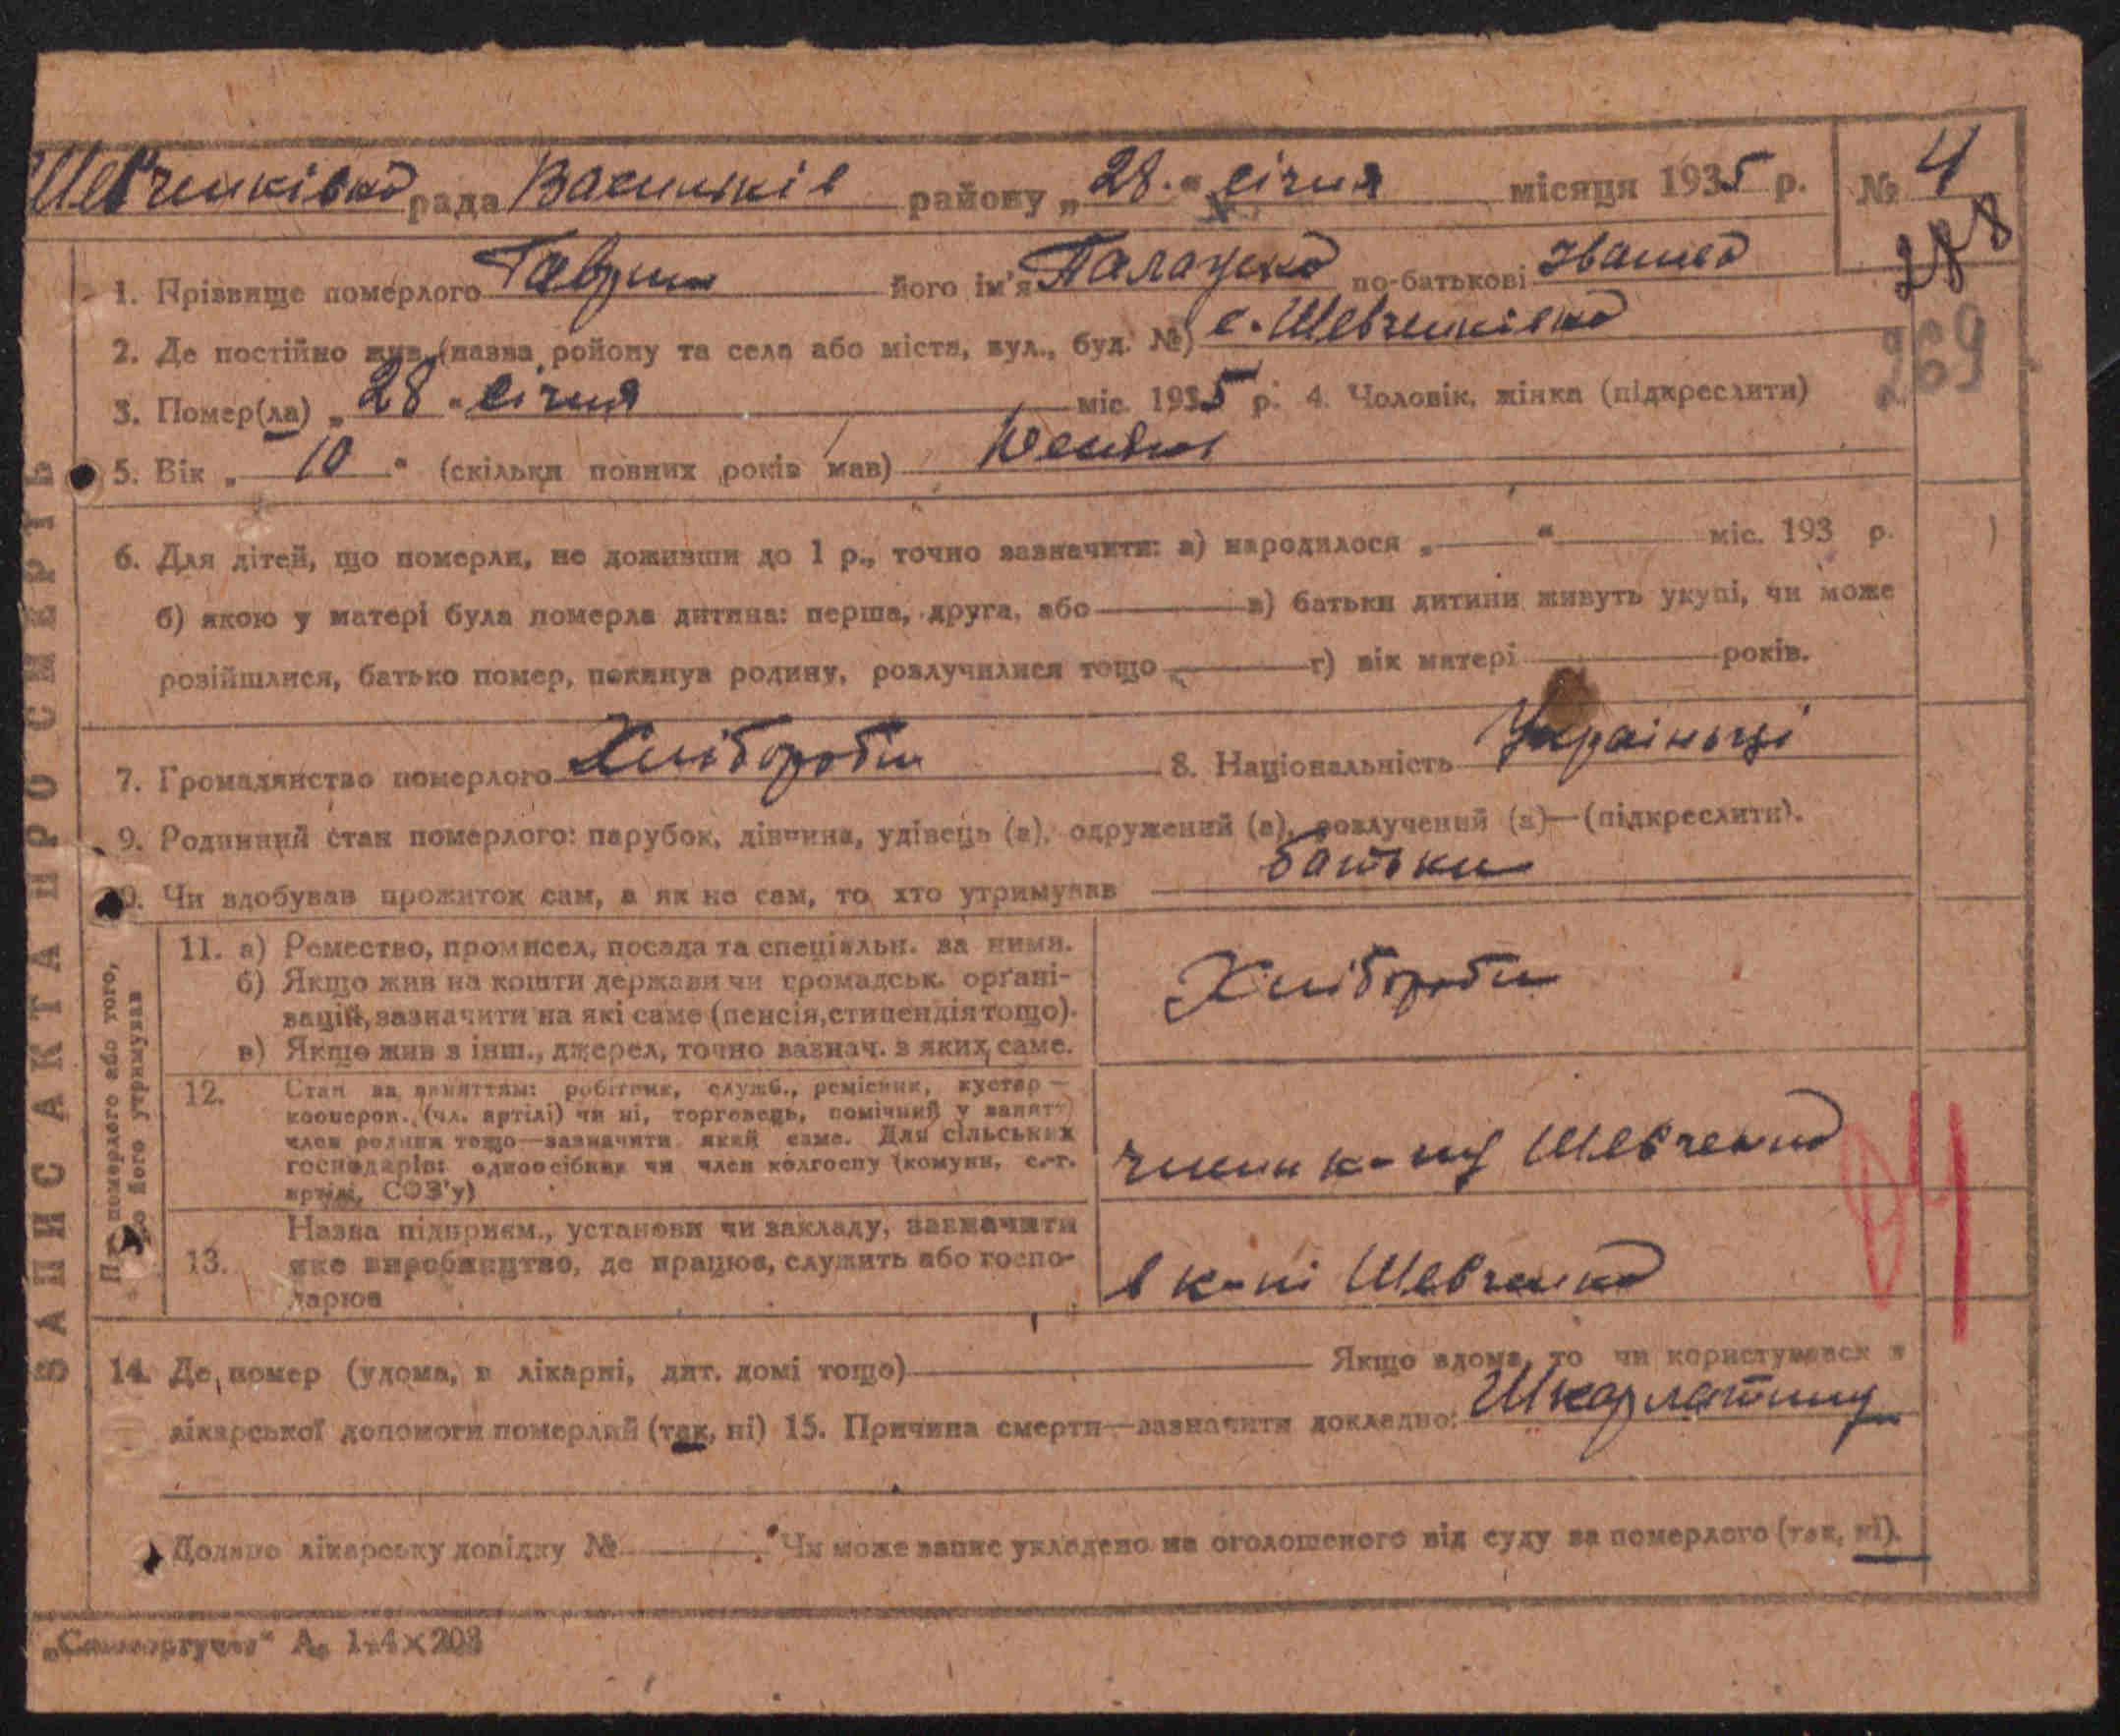 Шевченківка рада Васильків району „28“ січня місяця 1935 р. № 4
288
1. Прізвище померлого Гаврил його ім'я по-батькові Іванов
969
2. Де постійно жив (назва ройону та села або міста, вул., буд. №) с. Шевченківка
3. Помер(ла) „28“ січня міс. 1935 р. 4. Чоловік, жінка (підкреслити)
5. Вік „10“ (скільки повних років мав)
6. Для дітей, що померли, не доживши до 1 р., точно зазначити: а) народилося „ “ міс. 193 р.
б) якою у матері була померла дитина: перша, друга, або в) батьки дитини живуть укупі, чи може
розійшлися, батько помер, покинув родину, розлучилися тощо г) вік матері років.
7. Громадянство померлого Хлібороби 8. Національність Україньці
9. Родинний стан померлого: парубок, дівчина, удівець (а), одружений (а), розлучений (а)—(підкреслити).
10. Чи здобував прожиток сам, а як не сам, то хто утримував батьки
ЗАПИС АКТА ПРО СМЕРТЬ
Про померлого або того,
що його утримував
11. а) Ремество, промисел, посада та спеціяльн. за ними.
б) Якщо жив на кошти держави чи громадськ. органі-
зацій, зазначити на які саме (пенсія, стипендія тощо).
в) Якщо жив з інш., джерел, точно зазнач. з яких саме.
Хлібороби
12. Стан за заняттям: робітник, служб., ремісник, кустар —
кооперов. (чл. артілі) чи ні, торговець, помічний у занятті
член родини тощо—зазначити який саме. Для сільських
господарів: одноосібник чи член колгоспу (комуни, с.-г.
артілі, СОЗ'у)
к-пу Шевченко
13. Назва підприєм., установи чи закладу, зазначити
яке виробництво, де працює, служить або госпо-
дарює
в к-пі Шевченко
14. Де помер (удома, в лікарні, дит. домі тощо) Якщо вдома, то чи користувався з
лікарської допомоги померлий (так, ні) 15. Причина смерти—зазначити докладно: Шкарлатину
Додано лікарську довідку № Чи може запис укладено на оголошеного від суду за померлого (так, ні).
А₆ 1·4×203